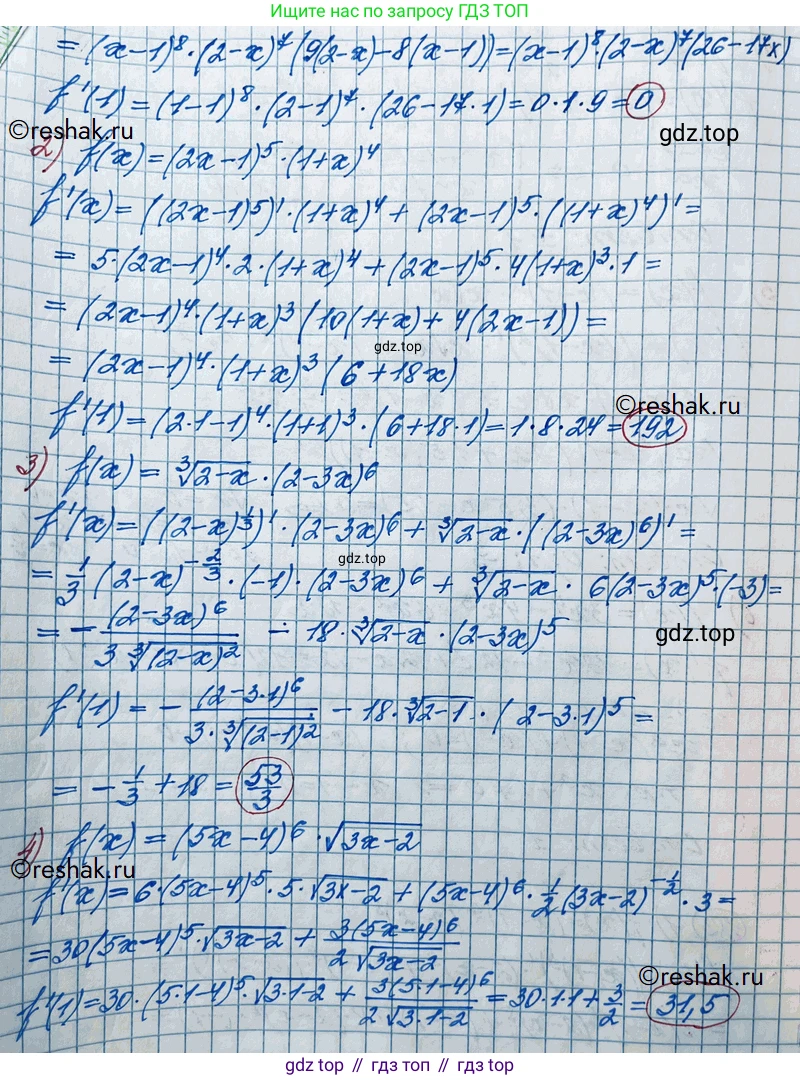 Ищите нас по запросу ГДЗ ТОП
= (x-1)⁸·(2-x)⁷(9(2-x)-8(x-1))=(x-1)⁸·(2-x)⁷(26-17x)
f'(1) = (1-1)⁸·(2-1)⁷·(26-17·1)=0·1·9=0
©reshak.ru
gdz.top
2) f(x)=(2x-1)⁵·(1+x)⁴
f'(x) = ((2x-1)⁵)'·(1+x)⁴+(2x-1)⁵·((1+x)⁴)'=
= 5·(2x-1)⁴·2·(1+x)⁴+(2x-1)⁵·4(1+x)³·1=
= (2x-1)⁴·(1+x)³(10(1+x)+4(2x-1))=
gdz.top
= (2x-1)⁴·(1+x)³(6+18x)
©reshak.ru
f'(1)=(2·1-1)⁴·(1+1)³·(6+18·1)=1·8·24=192
3) f(x)=∛(2-x)·(2-3x)⁶
f'(x)=((2-x)^(1/3))'·(2-3x)⁶+∛(2-x)·((2-3x)⁶)'=
gdz.top
= 1/3(2-x)^(-2/3)·(-1)·(2-3x)⁶+∛(2-x)·6(2-3x)⁵·(-3)=
= -(2-3x)⁶/(3∛((2-x)²)) - 18·∛(2-x)·(2-3x)⁵
gdz.top
f'(1)=-(2-3·1)⁶/(3·∛((2-1)²)) - 18·∛(2-1)·(2-3·1)⁵=
= -1/3+18=53/3
4) f(x)=(5x-4)⁶·√(3x-2)
©reshak.ru
f'(x)=6·(5x-4)⁵·5·√(3x-2)+(5x-4)⁶·1/2(3x-2)^(-1/2)·3=
=30(5x-4)⁵·√(3x-2)+3(5x-4)⁶/(2√(3x-2))
©reshak.ru
f'(1)=30·(5·1-4)⁵·√(3·1-2)+3(5·1-4)⁶/(2√(3·1-2))=30·1·1+3/2=31,5
gdz.top // гдз топ // гдз.top